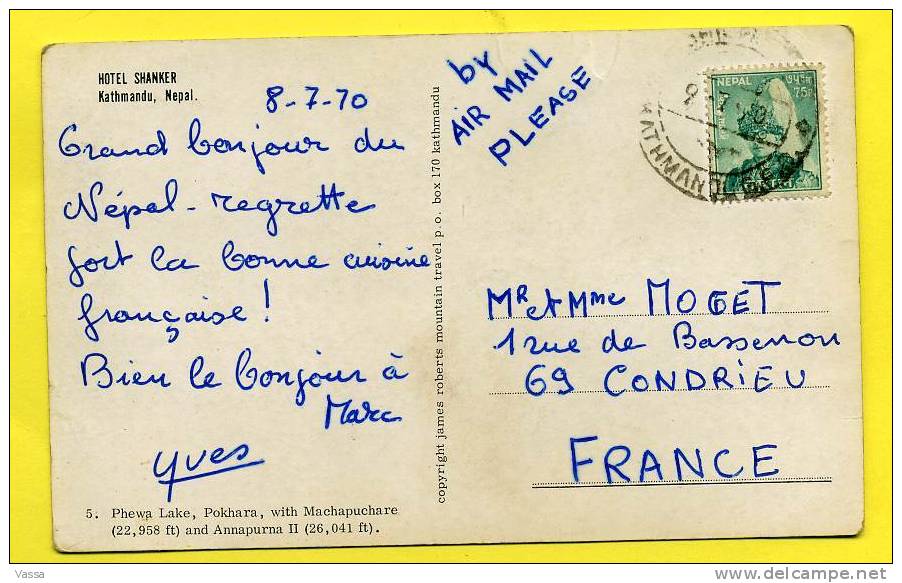 HOTEL SHANKER
Kathmandu, Nepal.
8-7-70
Grand bonjour du
Népal - regrette
fort la bonne cuisine
française !
Bien le bonjour à
Marc
Yves
5. Phewa Lake, Pokhara, with Machapuchare
(22,958 ft) and Annapurna II (26,041 ft).
copyright james roberts mountain travel p.o. box 170 kathmandu
by
AIR MAIL
PLEASE
NEPAL
75
KATHMANDU
MR et Mme MOGET
1 rue de Bassenon
69 CONDRIEU
FRANCE
Vassa
delcampe.net